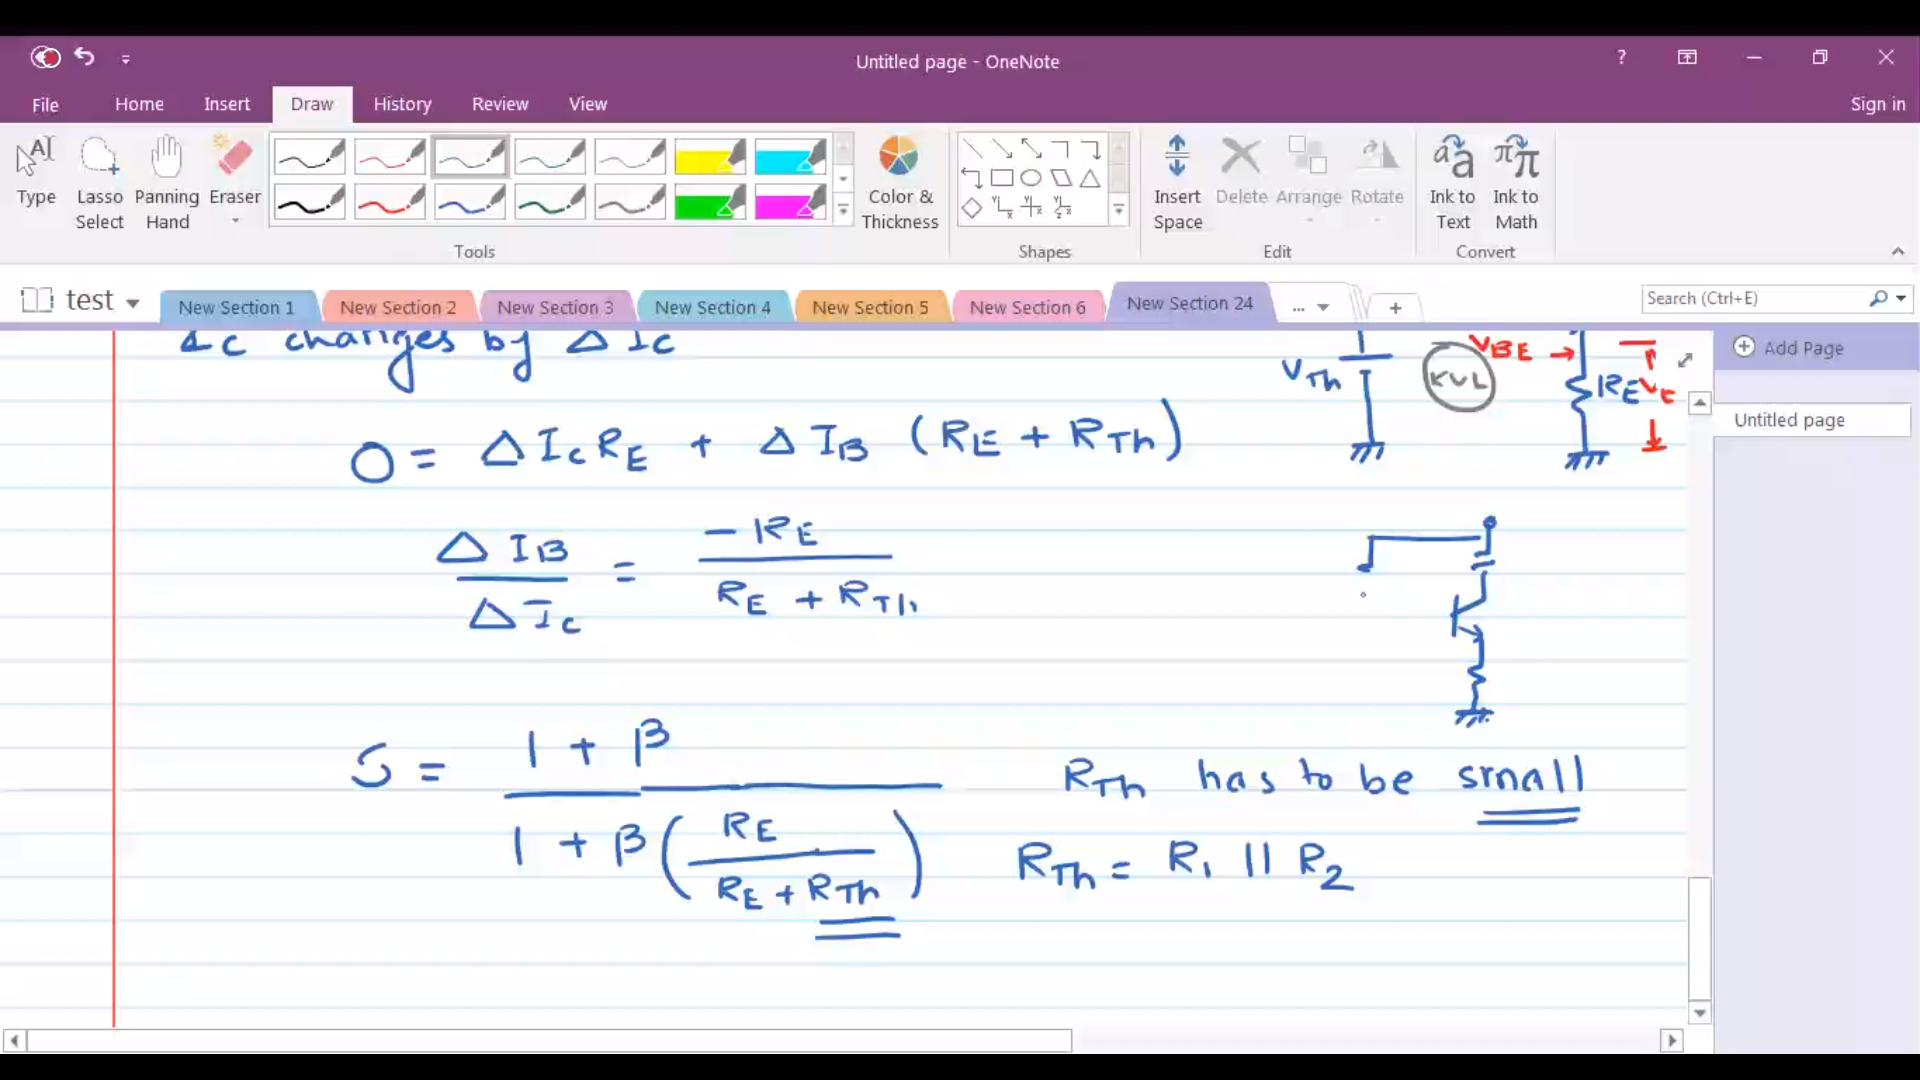 Untitled page - OneNote
?
File Home Insert Draw History Review View Sign in
Type
Lasso Select
Panning Hand
Eraser
Color & Thickness
Insert Space
Delete
Arrange
Rotate
Ink to Text
Ink to Math
Tools Shapes Edit Convert
test New Section 1 New Section 2 New Section 3 New Section 4 New Section 5 New Section 6 New Section 24 ... + Search (Ctrl+E)
Add Page
Untitled page
Ic changes by Δ Ic
VTh KVL VBE → RE VE
0 = Δ Ic RE + Δ IB (RE + RTh)
Δ IB / Δ Ic = - RE / RE + RTh
S = 1 + β / 1 + β ( RE / RE + RTh )
RTh has to be small
RTh = R1 || R2